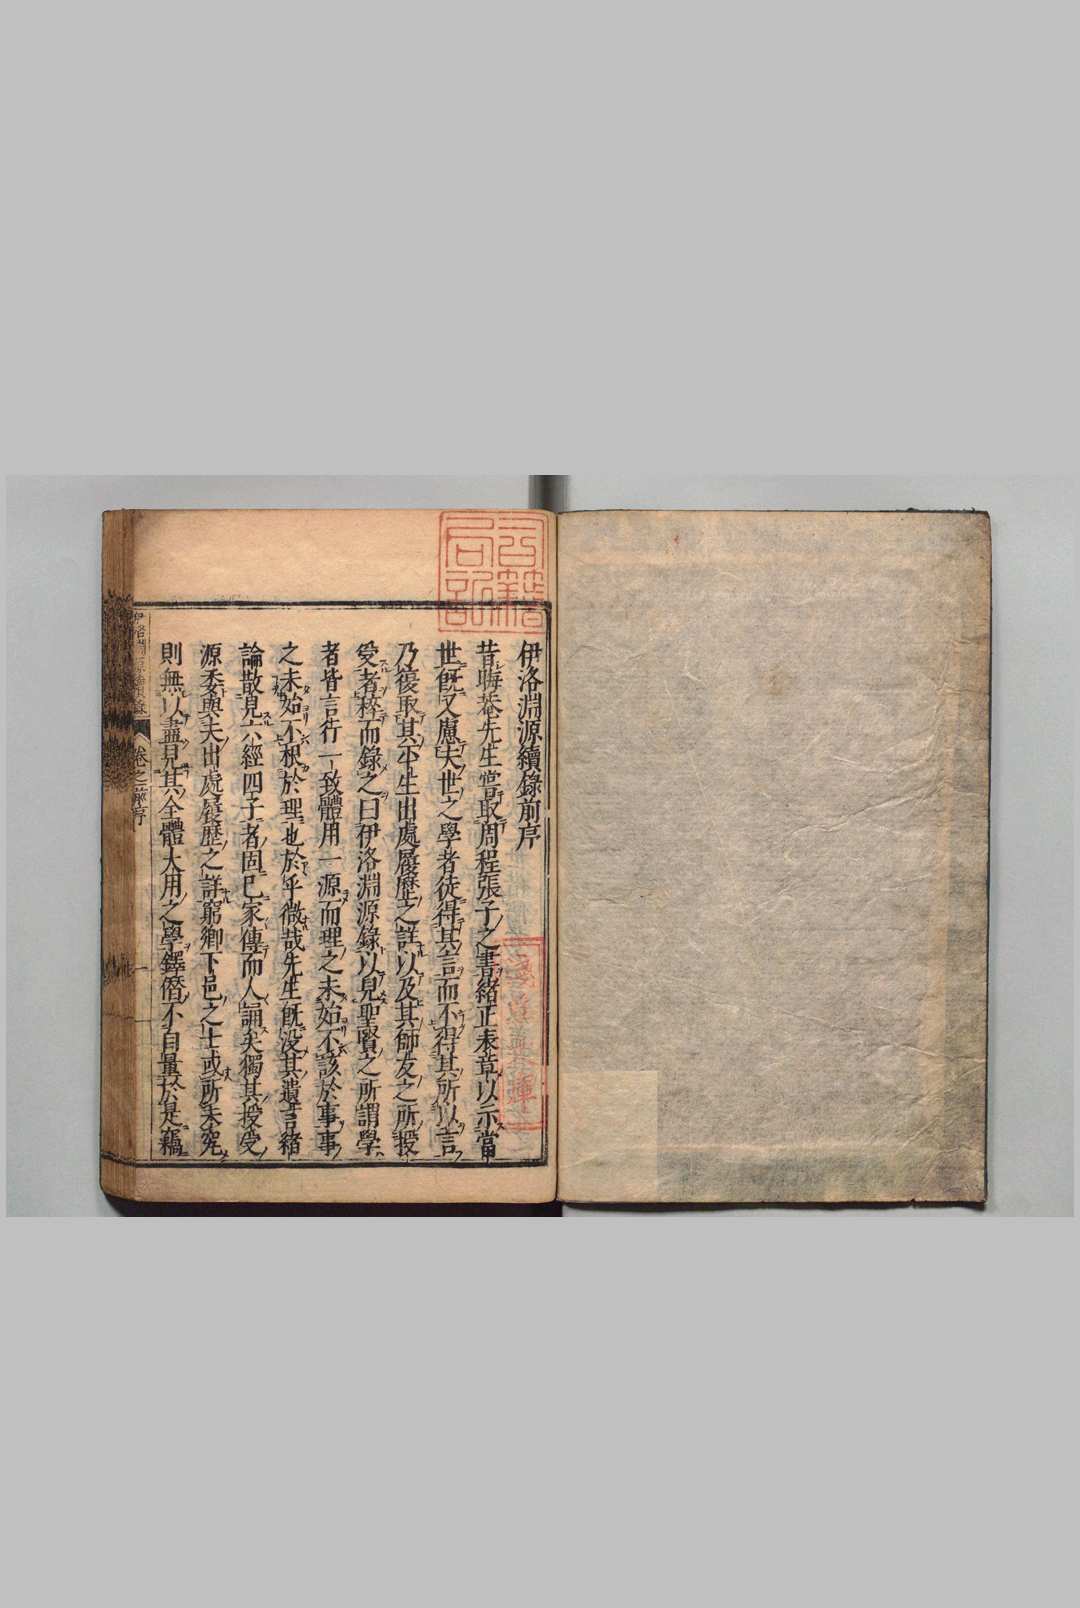 伊洛淵源續錄前序
昔晦菴先生嘗取周程張子之書緒正表章以示當
世既又慮夫世之學者徒得其言而不得其所以言
乃復取其平生出處履歷之詳以及其師友之所授
受者稡而錄之曰伊洛淵源錄以見聖賢之所謂學
者皆言行一致體用一源而理之未始不該於事事
之未始不根於理也於乎微哉先生既沒其遺言緒
論散見六經四子者固已家傳而人誦矣獨其授受
源委與夫出處履歷之詳窮鄉下邑之士或所未究
則無以盡見其全體大用之學鐸僭不自量於是竊
伊洛淵源續錄
卷之前序
一